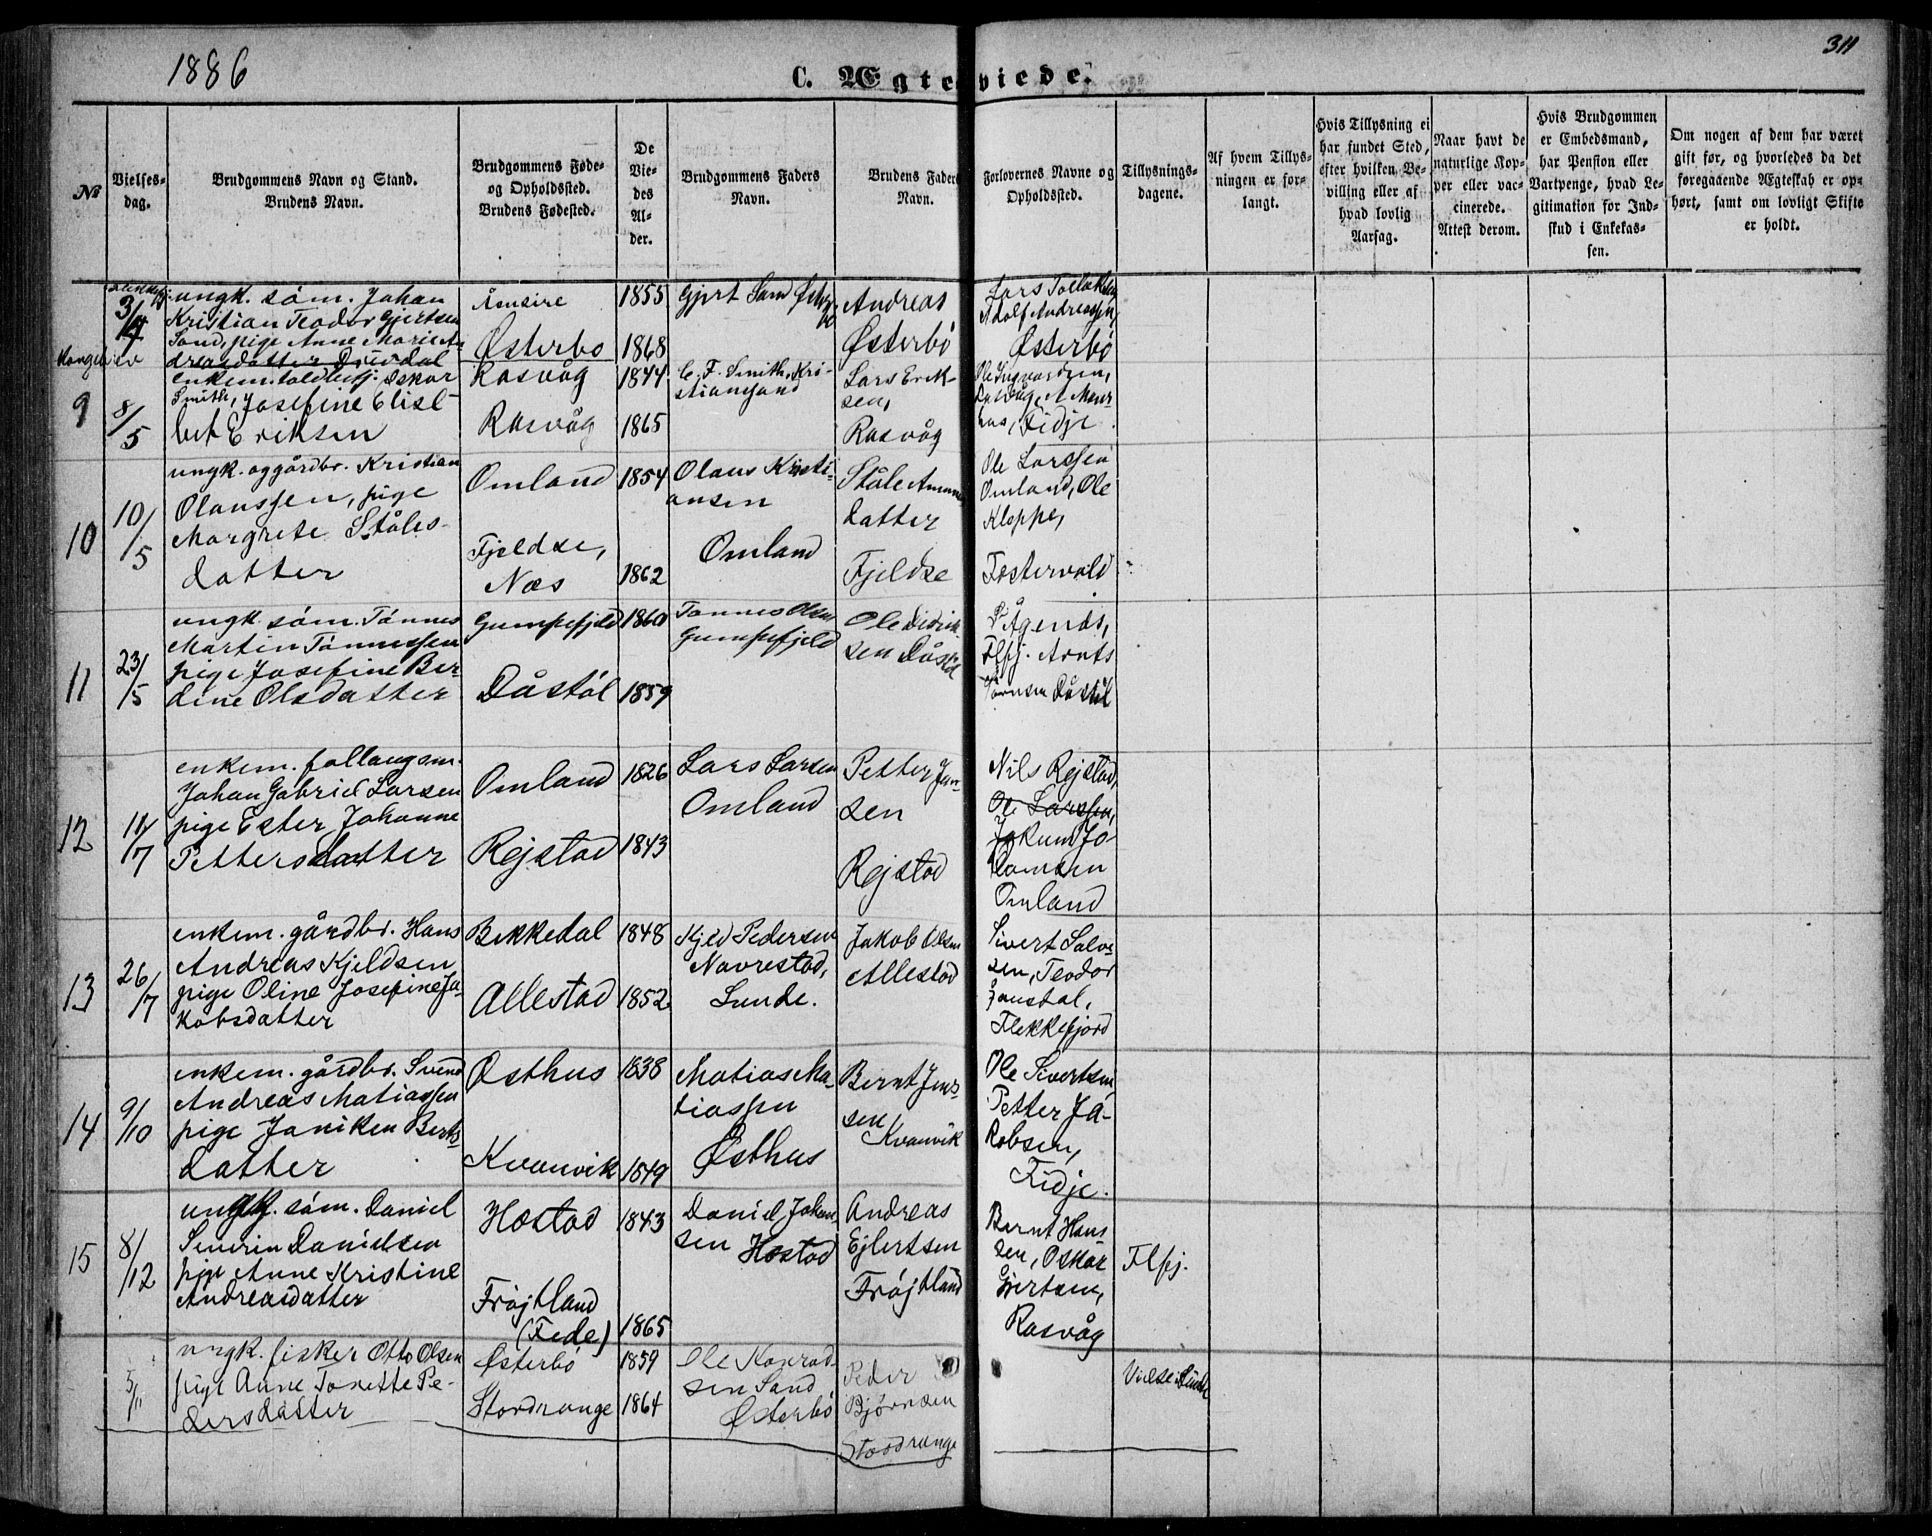 1886
311
C. Ægteviede.
№
Vielses-
dag.
Brudgommens Navn og Stand.
Brudens Navn.
Brudgommens Føde-
og Opholdssted.
Brudens Fødested.
De
Vie-
des
Al-
der.
Brudgommens Faders
Navn.
Brudens Faders
Navn.
Forlovernes Navne og
Opholdssted.
Tillysnings-
dagene.
Af hvem Tillys-
ningen er for-
langt.
Hvis Tillysning ei
har fundet Sted,
efter hvilken Be-
villing eller af
hvad lovlig
Aarsag.
Naar havt de
naturlige Kop-
per eller vac-
cinerede.
Attest derom.
Hvis Brudgommen
er Embedsmand,
har Pension eller
Vartpenge, hvad Le-
gitimation for Ind-
skud i Enkekas-
sen.
Om nogen af dem har været
gift før, og hvorledes da det
foregaaende Ægteskab er op-
hørt, samt om lovligt Skifte
er holdt.
3/4
Kongebrev
ungk. söm. Johan
Kristian Teodor Gjertsen
Sand, pige Anne Marie An
dreasdatter
Ånesire
Österbø
1855
1868
Gjert Sand
Andreas
Österbö
Lars
Adolf Andreassen,
Österbö
9
8/5
enkem. toldbetj. Oskar
Smith, Josefine Elisa-
bet Eriksen
Rasvåg
Rasvåg
1844
1865
C. F. Smith, Kri-
stiansand
Lars Erik-
sen,
Rasvåg
Ole Ingvardsen,
Fidje
10
10/5
ungk. og gårdbr. Kristian
Olaussen, pige
Margrete Ståles-
datter
Omland
Fjeldse,
Næs
1854
1862
Olaus Kristi-
ansen
Omland
Ståle
datter
Fjeldse
Ole Larssen
Omland, Ole
Kloppe,
11
23/5
ungk. söm. Tönnes
Martin Tönnessen
pige Josefine Ber-
dine Olsdatter
Gumpefjeld
Dåstöl
1860
1859
Tönnes Olsen
Gumpefjeld
Ole Didrik-
sen Dåstöl
Ågenæs,
Flfj. Arnt
Dåstöl
12
11/7
enkem. follaugsm.
Johan Gabriel Larsen
pige Ester Johanne
Pettersdatter
Omland
Rejstad
1826
1843
Lars Larsen
Omland
Petter Jan-
sen
Rejstad
Nils Rejstad,
Ole Larssen,
Omland
13
26/7
enkem. gårdbr. Hans
Andreas Kjeldsen
pige Oline Josefine Ja-
kobsdatter
Bekkedal
Allestad
1848
1852
Kjeld Pedersen
Navrestad,
Lunde.
Jakob Olsen
Allestad
Sivert Salve
sen, Teodor
Flekkefjord
14
9/10
enkem. gårdbr. Svend
Andreas Matiassen
pige Janiken Bernts-
datter
Østhus
Kvanvik
1838
1849
Matias Ma-
tiassen
Østhus
Bernt Jens-
sen
Kvanvik
Ole Sivertsen
Petter Ja-
kobsen,
Fidje.
15
8/12
ungk. söm. Daniel
Severin Danielsen
pige Anne Kristine
Andreasdatter
Hæstad
Fröjtland
(Fede)
1843
1865
Daniel Johan-
sen Hæstad
Andreas
Ejlertsen
Fröjtland
Bernt Han-
sen, Oskar
Gjertsen,
Rasvåg
Flfj.
5/11
ungk. fisker Otto Olsen
pige Anne Tonette Pe-
dersdatter
Österbö
Stordrange
1859
1864
Ole Konrad-
sen Sand
Österbö
Peder
Bjørnsen
Stordrange